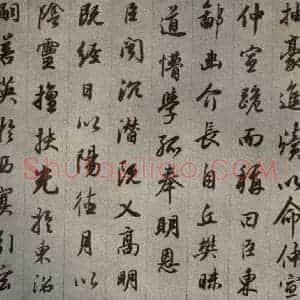 抽豪進牘以命仲宣
仲宣跪而稱曰臣東
鄙幽介長自丘樊昧
道懵學孤奉明恩
臣聞沉潛既义高明
既經日以陽德月以
陰靈擅扶光於東沼
嗣若英於西冥引玄